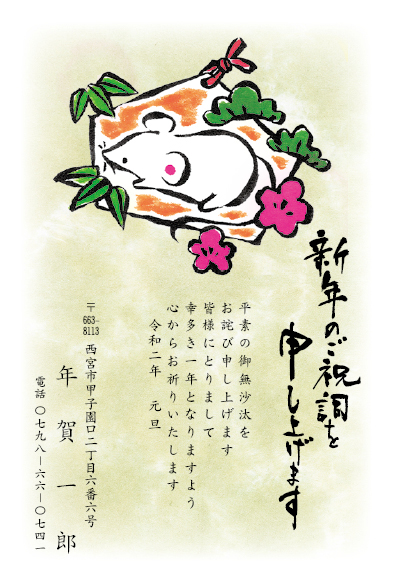 新年のご祝詞を
申し上げます
平素の御無沙汰を
お詫び申し上げます
皆様にとりまして
幸多き一年となりますよう
心からお祈りいたします
令和二年　元旦
〒663-8113
西宮市甲子園口二丁目六番六号
年賀一郎
電話　〇七九八－六六－〇七四一